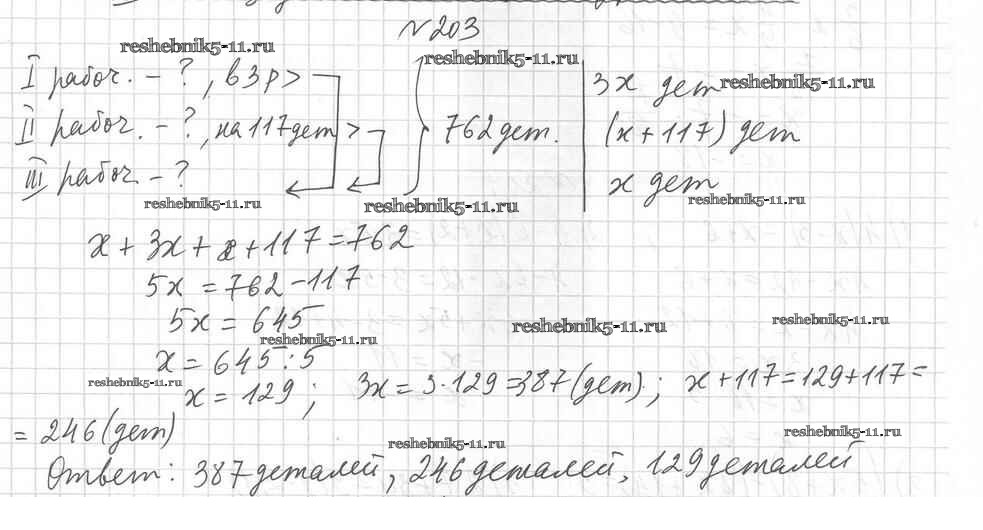 №203
reshebnik5-11.ru
reshebnik5-11.ru
I рабоч. - ?, в 3 р > 3x дет
reshebnik5-11.ru
II рабоч. - ?, на 117 дет > 762 дет. (x + 117) дет
III рабоч - ? x дет
reshebnik5-11.ru
reshebnik5-11.ru
reshebnik5-11.ru
x + 3x + x + 117 = 762
5x = 762 - 117
5x = 645
reshebnik5-11.ru
reshebnik5-11.ru
reshebnik5-11.ru
x = 645 : 5
reshebnik5-11.ru
x = 129 ; 3x = 3 · 129 = 387 (дет) ; x + 117 = 129 + 117 =
= 246 (дет)
reshebnik5-11.ru
reshebnik5-11.ru
Ответ: 387 деталей, 246 деталей, 129 деталей